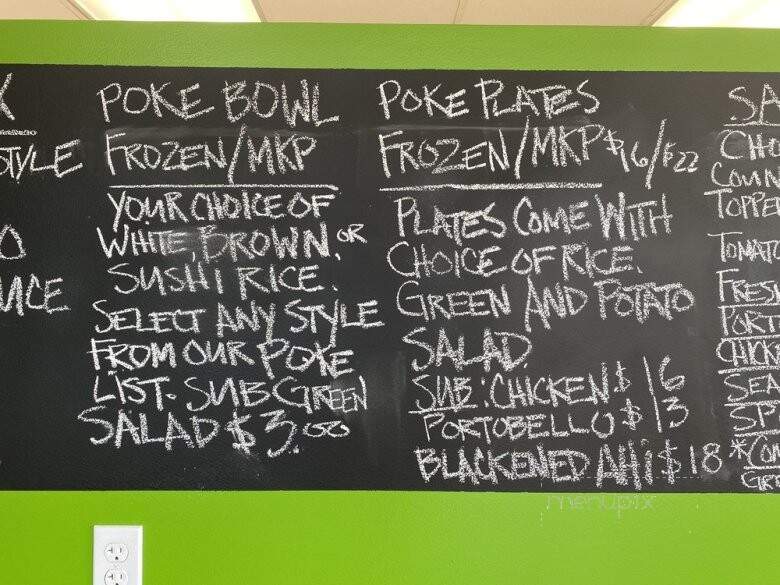 STYLE
POKE BOWL
FROZEN/MKP
YOUR CHOICE OF
WHITE, BROWN, OR
SUSHI RICE.
SELECT ANY STYLE
FROM OUR POKE
LIST. SUB GREEN
SALAD $3.00
POKE PLATES
FROZEN/MKP $16/$22
PLATES COME WITH
CHOICE OF RICE.
GREEN AND POTATO
SALAD.
SUB: CHICKEN $16
PORTOBELLO $13
BLACKENED AHI $18
SA
CHO
COUN
TOPPE
TOMATO
FRESH
PORT
CHICKE
SEA
SP
*CON
GRE
menupix